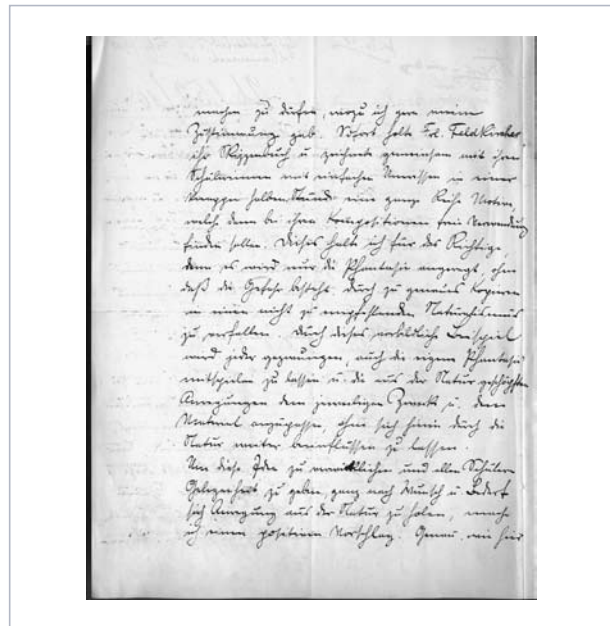 machen zu dürfen, wozu ich gern meine
Zustimmung gab. Sofort holte Frl. Feldkircher
ihr Skizzenbuch u. zeichnete gemeinsam mit ihren
Schülerinnen mit einfachen Umrissen in einer
knappen halben Stunde eine ganze Reihe Motive,
welche dann bei ihren Kompositionen freie Verwendung
finden sollen. Dieses halte ich für das Richtige,
denn es wird nur die Phantasie angeregt, ohne
daß die Gefahr besteht, durch zu genaues Kopieren
in einen nicht zu empfehlenden Naturalismus
zu verfallen. Durch dieses vorbildliche Beispiel
wird jeder gezwungen, auch die eigene Phantasie
mitspielen zu lassen u. die aus der Natur geschöpften
Anregungen dem jeweiligen Zweck u. dem
Material anzupassen, ohne sich hierin durch die
Natur weiter beeinflussen zu lassen.
Um diese Idee zu verwirklichen und allen Schülern
Gelegenheit zu geben, ganz nach Wunsch u. Bedarf
sich Anregung aus der Natur zu holen, mache
ich einen positiven Vorschlag. Genau wie hier